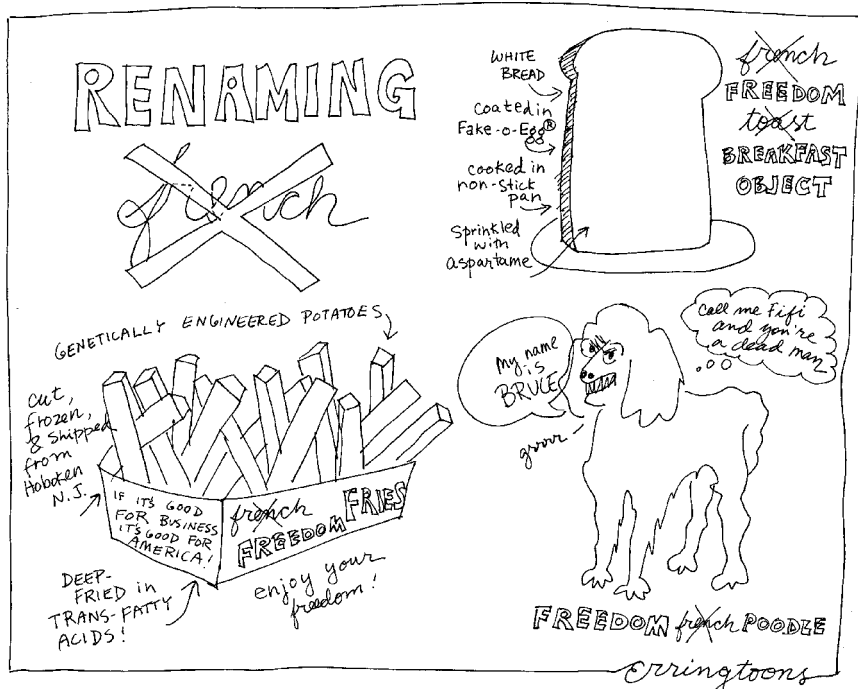 RENAMING
french
WHITE
BREAD
coated in
Fake-o-Egg®
cooked in
non-stick
pan
Sprinkled
with
aspartame
french
FREEDOM
toast
BREAKFAST
OBJECT
GENETICALLY ENGINEERED POTATOES
cut,
frozen,
& shipped
from
Hoboken
N.J.
IF IT'S GOOD
FOR BUSINESS
IT'S GOOD FOR
AMERICA!
french
FREEDOM FRIES
DEEP-
FRIED in
TRANS-FATTY
ACIDS!
enjoy your
freedom!
My name
is
BRUCE
grrrr
call me Fifi
and you're
a dead man
FREEDOM french POODLE
erringtoons